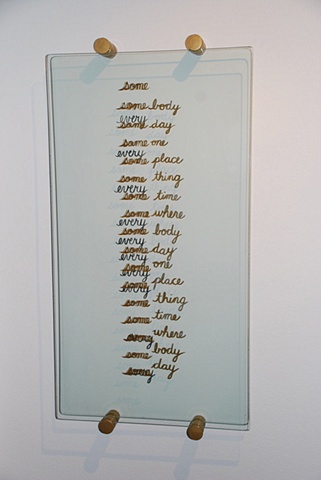 some
some body
every
some day
some one
every
some place
some thing
every
some time
some where
every
some body
every
some day
every
some one
every
some place
every
some thing
some time
every where
some body
every day